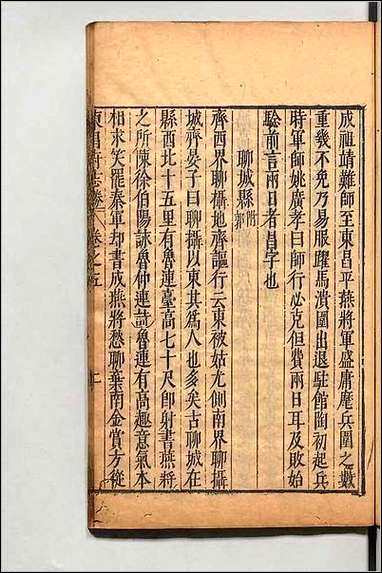 成祖靖難師至東昌平燕將軍盛庸麾兵圍之數
重幾不免乃易服躍馬潰圍出退駐館陶初起兵
時軍師姚廣孝曰師行必克但費兩日耳及敗始
驗前言兩日者昌字也
聊城縣附郭
齊西界聊攝地齊謳行云東被姑尤側南界聊攝
城齊晏子曰聊攝以東其為人也多矣古聊城在
縣西北十五里有魯連臺高七十尺即射書燕將
之所陳徐伯陽詠魯仲連詩魯連有高趣意氣本
相求笑罷秦軍却書成燕將愁聊棄南金賞方從
卷之五